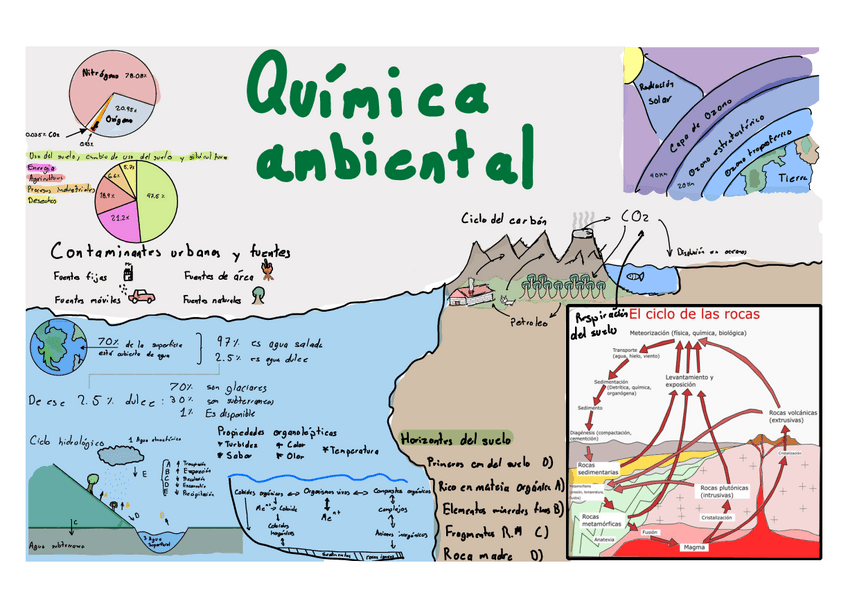 Química
ambiental
Nitrógeno 78.08%
20.95%
Oxígeno
Uso del suelo, cambio de uso del suelo y silvicultura
Energía
Agricultura
Procesos industriales
Desechos
47.5%
21.2%
Radiación
solar
Capa de Ozono
Ozono estratosférico
Ozono troposférico
40 Km
20 Km
Tierra
Contaminantes urbanos y fuentes
Fuente fijas
Fuentes de área
Fuente móviles
Fuente naturales
Ciclo del carbón
CO2
Disolución en oceanos
Petroleo
70% de la superficie
está cubierta de agua
97% es agua salada
2.5% es agua dulce
De ese 2.5% dulce:
70% son glaciares
30% son subterraneos
1% Es disponible
Ciclo hidrológico
1 Agua atmosférica
E
C
D
Agua subterranea
3 Agua
superficial
Propiedades organolépticas
Turbidez
Color
Sabor
Olor
Temperatura
Coloides orgánicos
Organismos vivos
Compuestos orgánicos
Coloides
inorganicos
Complejos
Aniones inorgánicos
Horizontes del suelo
Primeros cm del suelo O)
Rico en materia orgánica A)
Elementos minerales finos B)
Fragmentos R.M C)
Roca madre D)
Respiración
del suelo
El ciclo de las rocas
Meteorización (física, química, biológica)
Transporte
(agua, hielo, viento)
Levantamiento y
exposición
Sedimentación
(Detrítica, química,
organógena)
Sedimento
Diagénesis (compactación,
cementción)
Rocas volcánicas
(extrusivas)
Cristalización
Rocas
sedimentarias
Rocas plutónicas
(intrusivas)
Rocas
metamórficas
Cristalización
Anatexia
Fusión
Magma